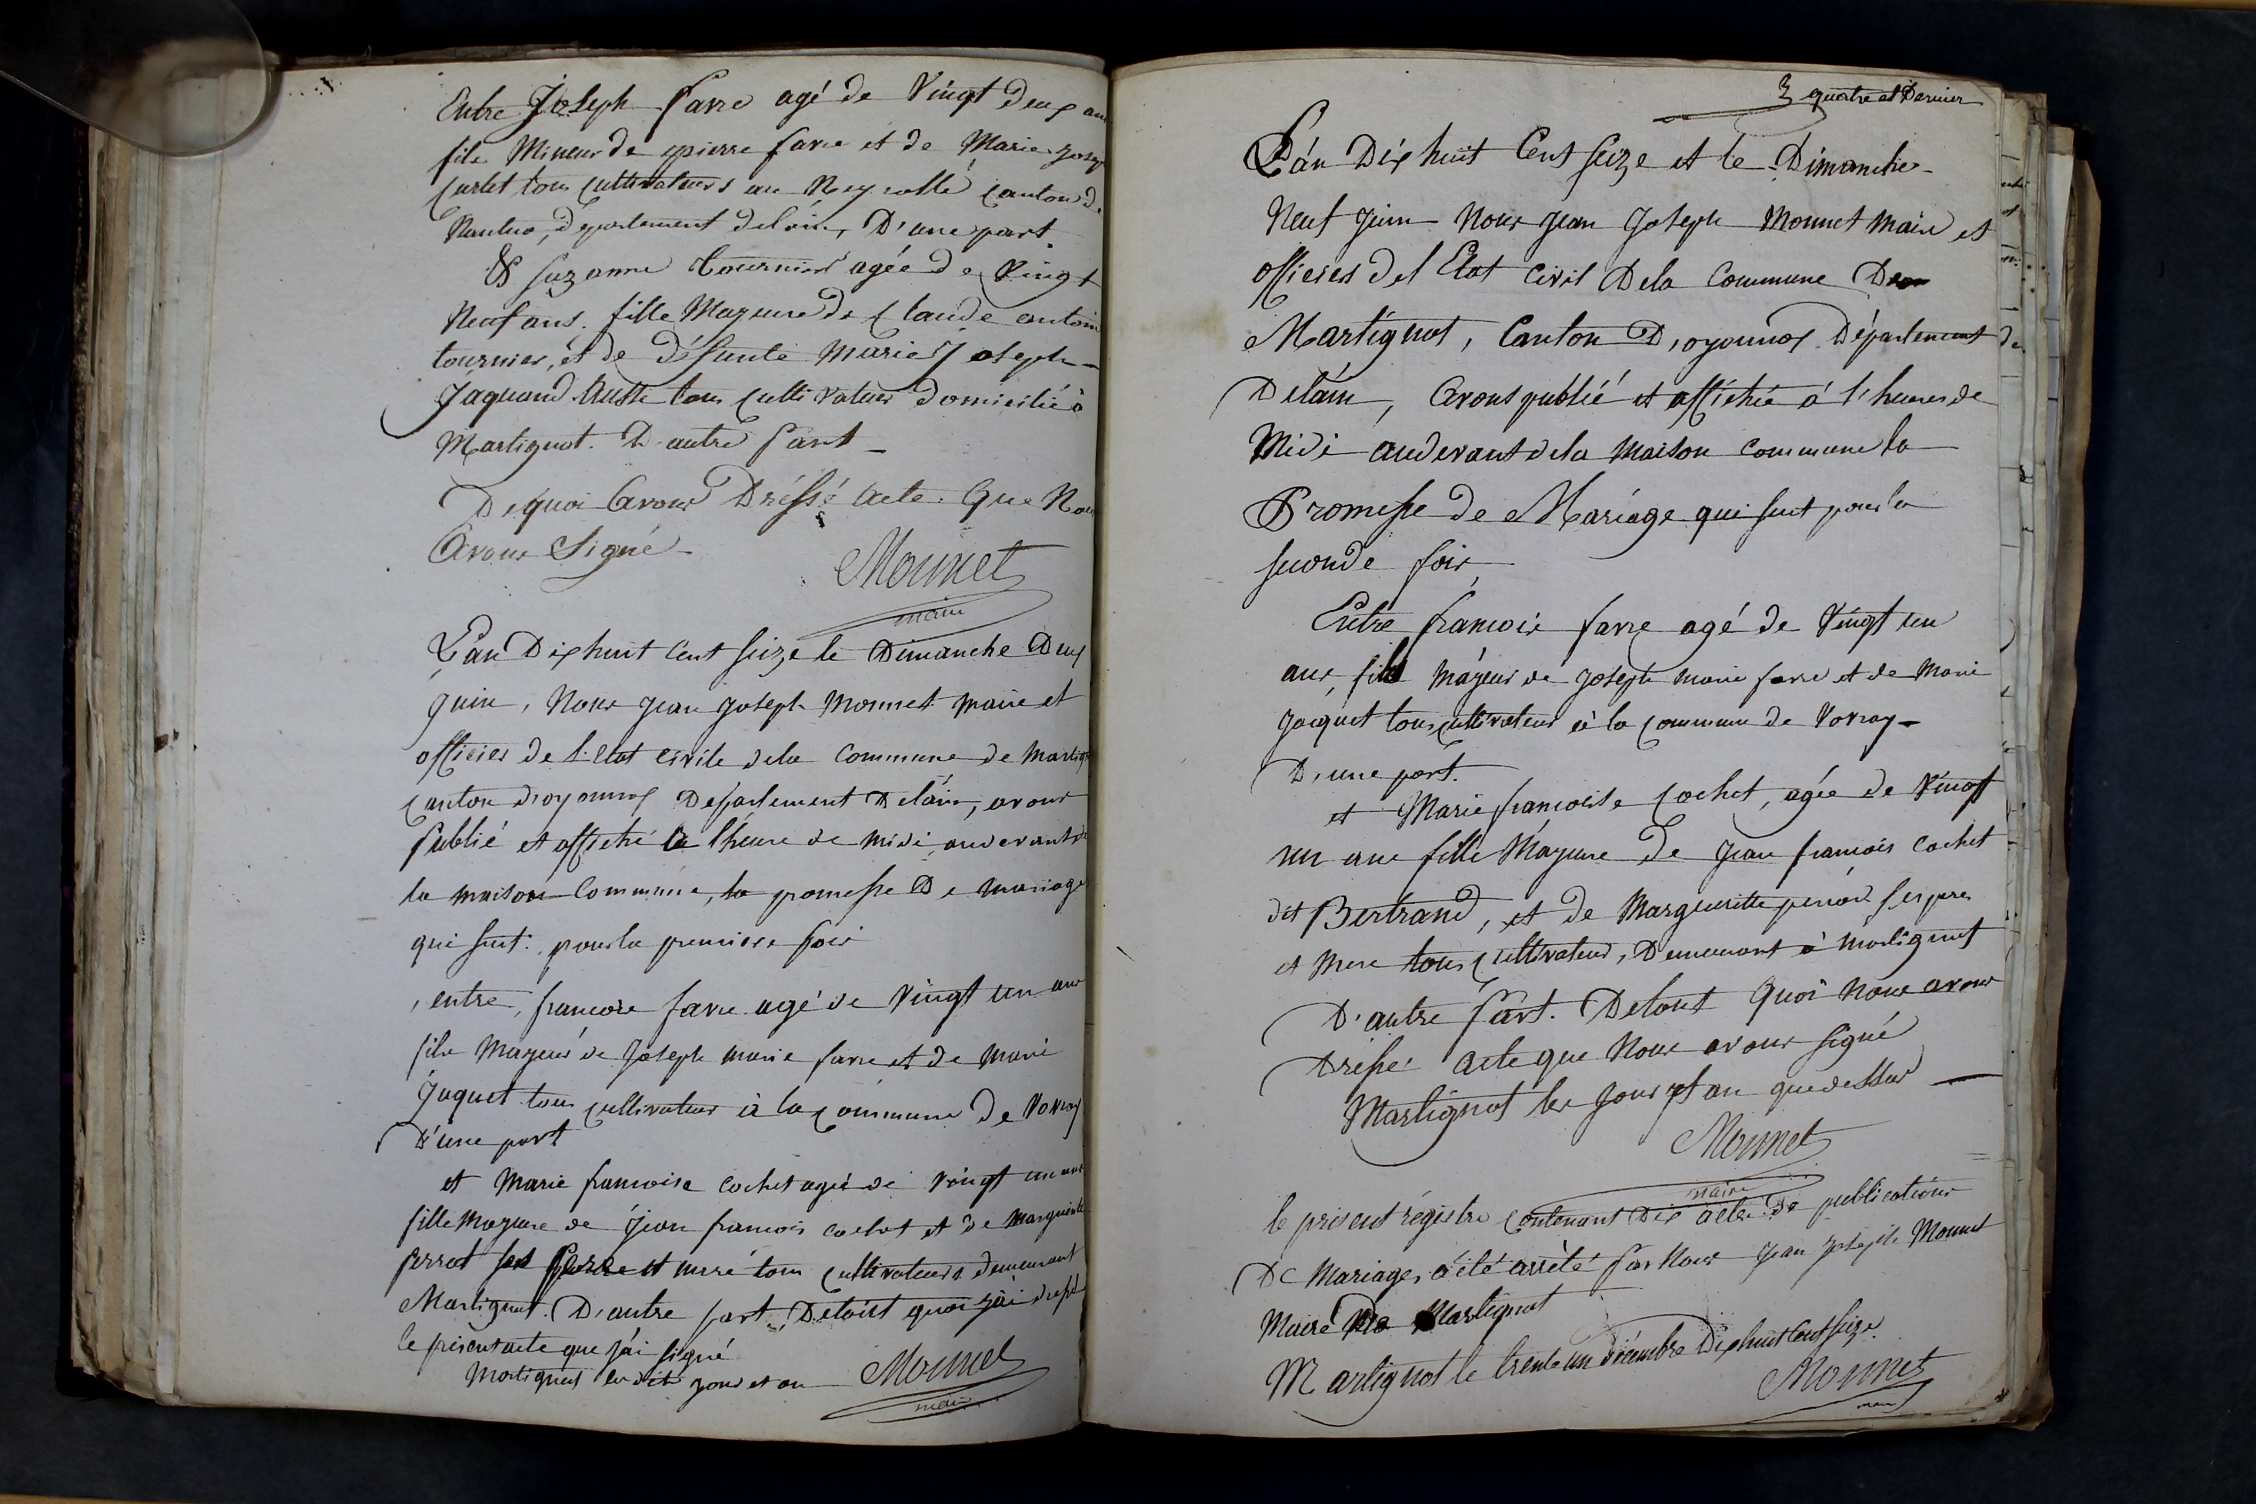 Entre Joseph favre agé de Vingt deux ans
fils Mineur de pierre favre et de Marie Josep
Curlet tous Cultivateurs au Neyrolle Canton de
Nantua, département delain, D'une part
& suzanne tournier agée de Vingt
Neuf ans. fille Mayeure de Claude antoin
tournier, et de défunte Marie Joseph
Jaquand tous Cultivateur domicilié à
Martignat. D'autre part
De quoi Avons Dréssé Acte. Que Nous
Avons Signé
Monnet
maire
L'an Dix huit Cent Seize le Dimanche Deux
juin, Nous jean joseph Monnet maire et
officier de l'etat civile dela Commune de Martign
Canton d'oyonnax Département Delain, avons
Publié et affiché a lheure de midi, audevant de
la maison Commune, la promesse De mariage
qui suit: pour la premiere fois
entre, francois favre agé de Vingt un ans
fils Mayeur de Joseph marie favre et de marie
Jaquet tous cultivateur à la commune de Vovray
D'une part
et Marie francoise cochet agée de vingt un ans
fille Mayeure de jean francois cochet et de Marguerite
perrot ses Perre et meré tous Cultivateurs demeurant
Martignat. D'autre part, Detout quoi j'ai dressé
le présent acte que j'ai signé
Martignat lesdits jour et an Monnet
maire
3 quatre et Dernier
L'an Dix huit Cent Seize et le Dimanche
Neuf juin Nous jean Joseph Monnet Maire et
officier del Etat Civil Dela Commune De
Martignat, Canton D'oyonnax Département
Delain, Avons publié et affiché à l'heure de
Midi audevant dela Maison Commune la
Promesse de Mariage qui suit pour la
seconde fois
Entre francois favre agé de Vingt un
ans, fils mayeur de Joseph marie favre et de Marie
Jacquet tous cultivateur à la commune de Vovray
D'une part.
et Marie francoise Cochet, agée de Vingt
un ans fille Mayeure de Jean francois Cochet
dit Bertrand, et de Margueritte perrod ses pere
et Mere tous Cultivateur, Demeurant à Martignat
D'autre Part. Detout Quoi Nous avons
Dressé acte que Nous avons signé
Martignat les jour et an que dessus
Monnet
maire
le présent régistre Contenant Dix acte de publications
De Mariages a été arrêté par Nous Jean Joseph Monnet
Maire De Martignat
Martignat le trente un décembre Dix huit Cent Seize.
Monnet
maire